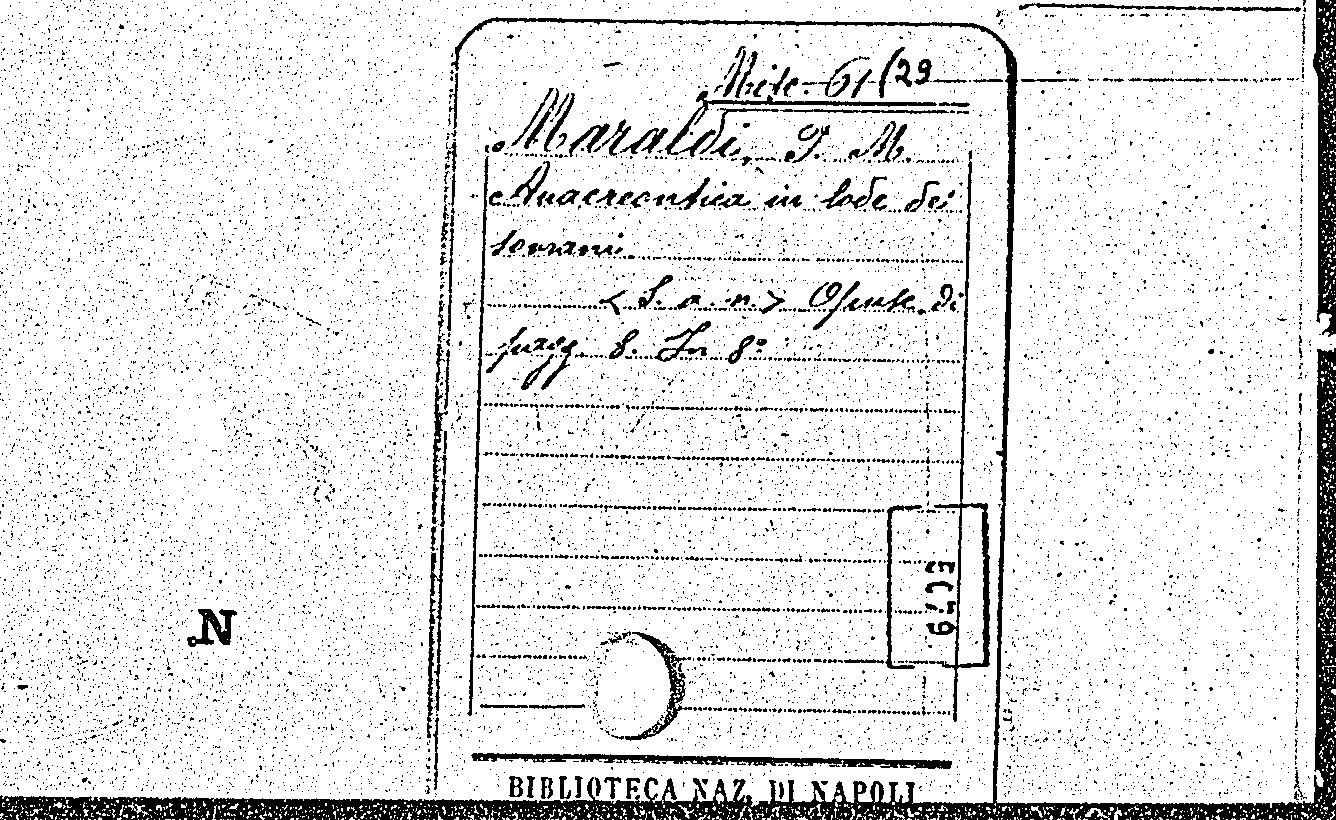 Misc. 61(29
Maraldi, P. M.
Anacreontica in lode dei
sovrani.
< S. a. n. > Opusc. di
pagg. 8. In 8°
N
BIBLIOTECA NAZ. DI NAPOLI